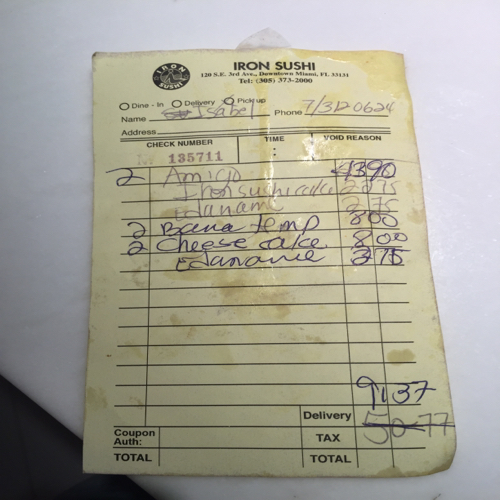 IRON SUSHI
IRON SUSHI
120 S.E. 3rd Ave., Downtown Miami, FL 33131
Tel: (305) 373-2000
Dine - In Delivery Pick up
Name Isabel Phone 7/312 0624
Address
CHECK NUMBER TIME VOID REASON
135711 :
2 Amigo 43 90
Iron sushi cake 20 75
edaname 3 75
2 Bana temp 8 00
2 Cheese cake 8 00
Edaname 3 75
91 37
Delivery
50 77
Coupon Auth: TAX
TOTAL TOTAL